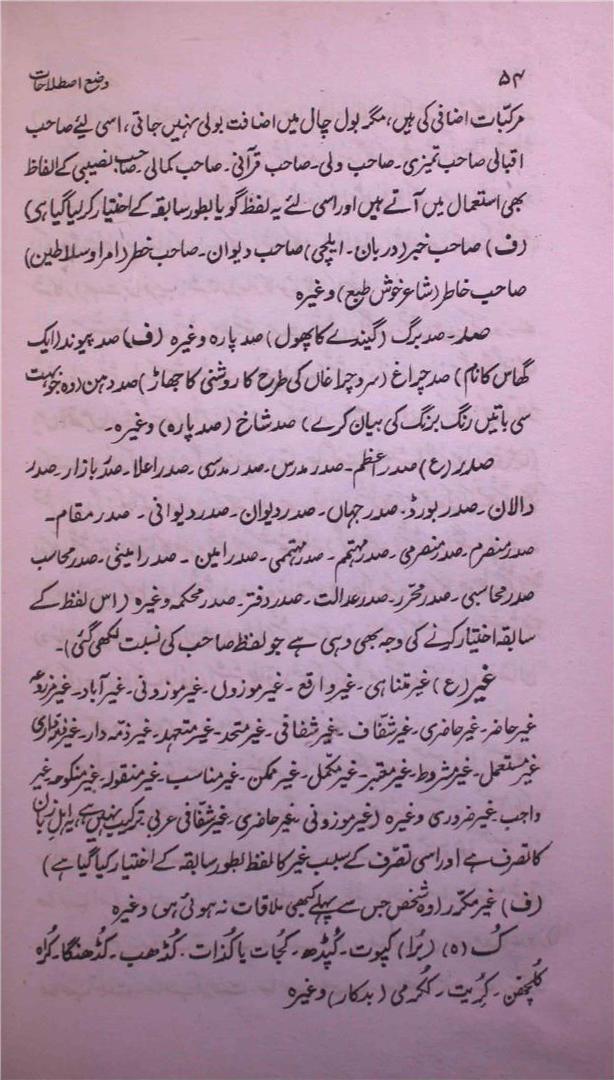 ۵۴
وضع اصطلاحات
مرکبّات اضافی کی ہیں، مگر بول چال میں اضافت بولی نہیں جاتی، اسی لیٔے صاحب
اقبالی صاحب تمیزی۔ صاحب ولی۔ صاحب قرآنی۔ صاحب کمالی۔ صاحب نصیبی کے الفاظ
بھی استعمال میں آتے ہیں اور اسی لئے یہ لفظ گویا بطور سابقہ کے اختیار کر لیا گیا ہی)
(ف) صاحب خبر (دربان۔ ایلچی) صاحب دیوان۔ صاحب خطر (امرا و سلاطین)
صاحب خاطر (شاعر خوش طبع) وغیرہ
صد۔ صد برگ (گیندے کا پھول) صد پارہ وغیرہ (ف) صد پیوند (ایک
گھاس کا نام) صد چراغ (سرو چراغاں کی طرح کا روشنی کا جھاڑ) صد دہن (وہ جو بہت
سی باتیں رنگ برنگ کی بیان کرے) صد شاخ (صد پارہ) وغیرہ۔
صدر (ع) صدر اعظم۔ صدر مدرس۔ صدر مدرسی۔ صدر اعلا۔ صدر بازار۔ صدر
دالان۔ صدر بورڈ۔ صدر جہاں۔ صدر دیوان۔ صدر دیوانی۔ صدر مقام۔
صدر منصرم۔ صدر منصرمی۔ صدر مہتمم۔ صدر مہتممی۔ صدر امین۔ صدر امینی۔ صدر محاسب
صدر محاسبی۔ صدر محرّر۔ صدر عدالت۔ صدر دفتر۔ صدر محکمہ وغیرہ (اس لفظ کے
سابقہ اختیار کرنے کی وجہ بھی وہی ہے جو لفظ صاحب کی نسبت لکھی گئی)۔
غیر (ع) غیر متناہی۔ غیر واقع۔ غیر موزوں۔ غیر موزونی۔ غیر آباد۔ غیر مزروعہ
غیر حاضر۔ غیر حاضری۔ غیر شفّاف۔ غیر شفافی۔ غیر متحد۔ غیر متعہد۔ غیر ذمّہ دار۔ غیر ذمّہ داری
غیر مستعمل۔ غیر مشروط۔ غیر معتبر۔ غیر مکمّل۔ غیر ممکن۔ غیر مناسب۔ غیر منقولہ۔ غیر منکوحہ۔ غیر
واجب۔ غیر ضروری وغیرہ (غیر موزونی۔ غیر حاضری۔ غیر شفّافی عربی ترکیب نہیں ہے، یہ اہل زبان
کا تصرف ہے اور اسی تصرّف کے سبب غیر کا لفظ بطور سابقہ کے اختیار کیا گیا ہے)
(ف) غیر مکرّر (وہ شخص جس سے پہلے کبھی ملاقات نہ ہوئی ہو) وغیرہ
کُ (ہ) (بُرا) کپوت۔ کُپڑھ۔ کجات یا کُذات۔ کُڈھب۔ کُڈھنگا۔ کُراہ
کُلچھن۔ کُریت۔ کُکرمی (بدکار) وغیرہ